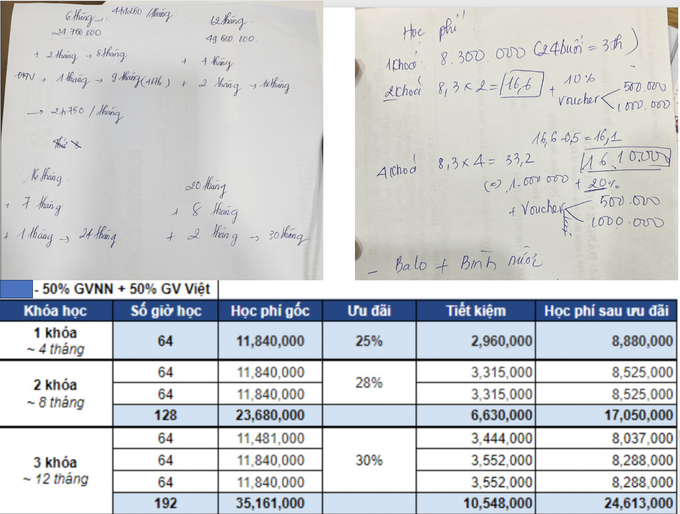 6 tháng
4.141.260 / tháng
12 tháng
24.760.000
49.600.000
+ 2 tháng → 8 tháng
+ 4 tháng
+ 1 tháng → 9 tháng
+ 2 tháng →
→ 2.750 / tháng
16 tháng
20 tháng
+ 7 tháng
+ 8 tháng
+ 1 tháng → 24 tháng
+ 2 tháng → 30 tháng
Học phí
1 khoá 8.300.000 (24 buổi = 3 th)
2 khoá 8,3 x 2 = 16,6 + 10%
voucher 500.000
1000.000
16,6 - 0,5 = 16,1
4 khoá 8,3 x 4 = 33,2
16.10.000
1.000.000 + 20%
+ Voucher 500.000
1000.000
- Balo + Bình nước
- 50% GVNN + 50% GV Việt
Khóa học Số giờ học Học phí gốc Ưu đãi Tiết kiệm Học phí sau ưu đãi
1 khóa ~ 4 tháng 64 11,840,000 25% 2,960,000 8,880,000
2 khóa ~ 8 tháng 28%
64 11,840,000 3,315,000 8,525,000
64 11,840,000 3,315,000 8,525,000
128 23,680,000 6,630,000 17,050,000
3 khóa ~ 12 tháng 30%
64 11,481,000 3,444,000 8,037,000
64 11,840,000 3,552,000 8,288,000
64 11,840,000 3,552,000 8,288,000
192 35,161,000 10,548,000 24,613,000